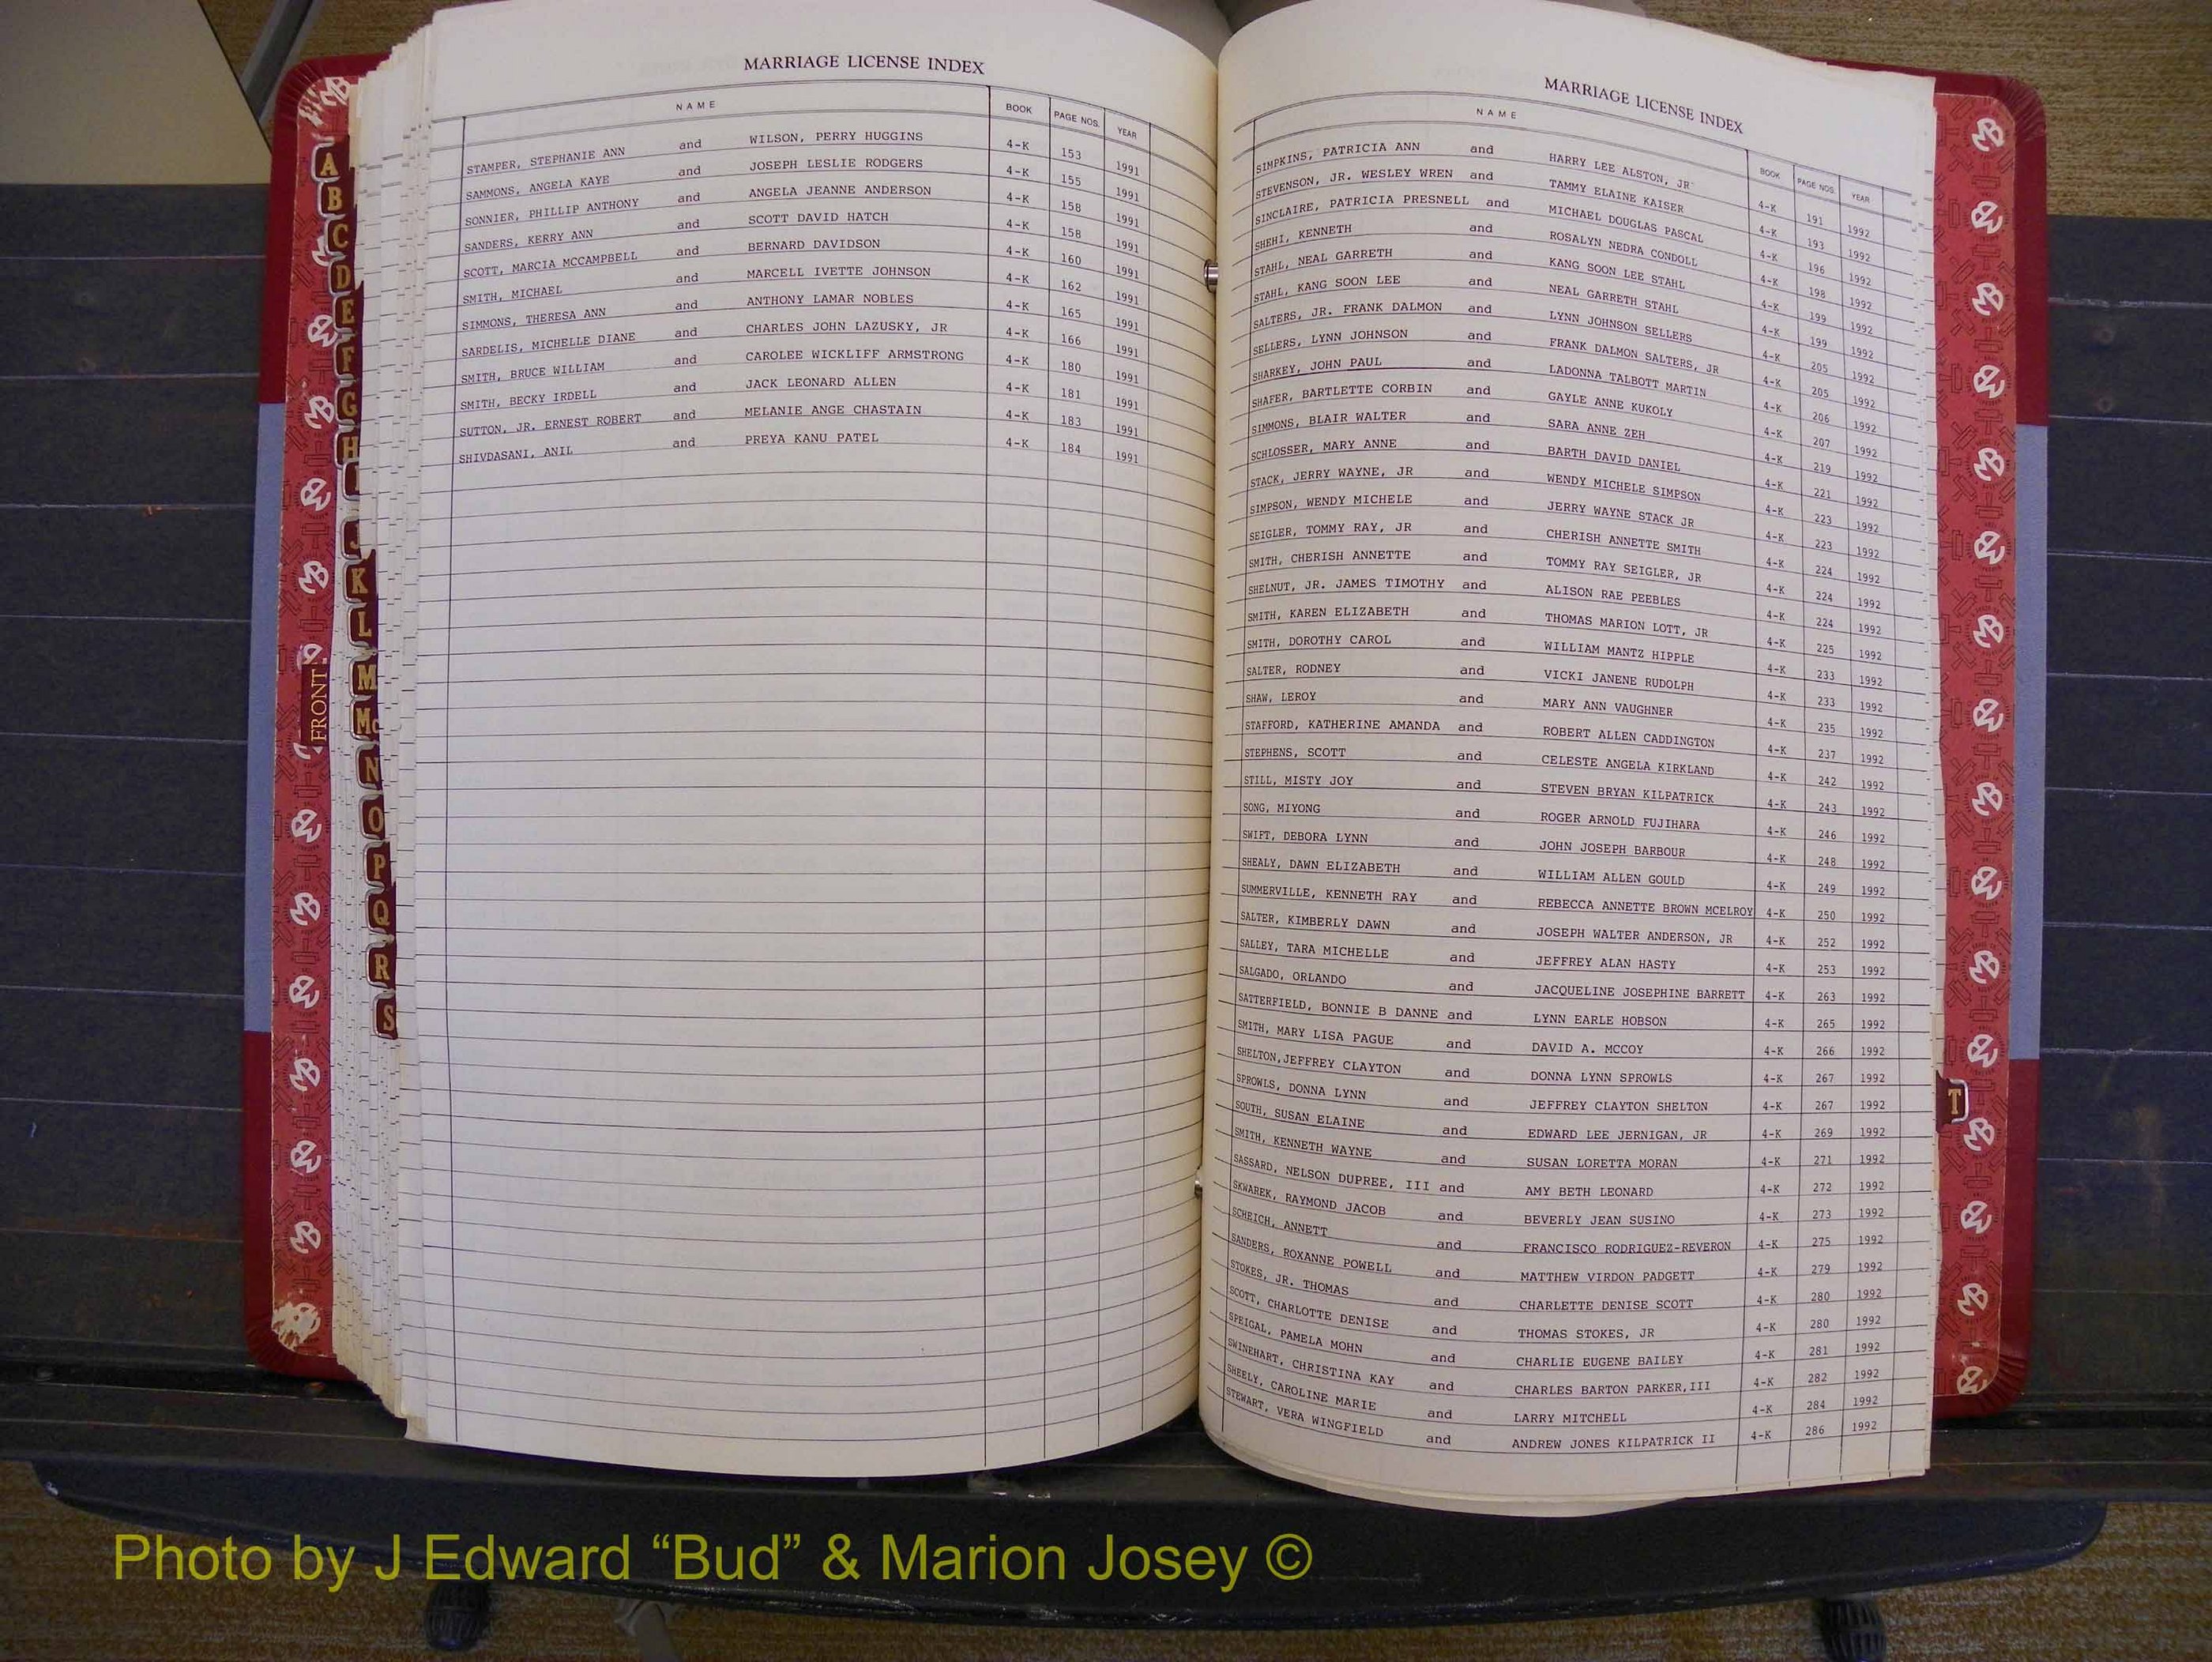 MARRIAGE LICENSE INDEX
NAME BOOK PAGE NOS. YEAR
STAMPER, STEPHANIE ANN and WILSON, PERRY HUGGINS 4-K 153 1991
SAMMONS, ANGELA KAYE and JOSEPH LESLIE RODGERS 4-K 155 1991
SONNIER, PHILLIP ANTHONY and ANGELA JEANNE ANDERSON 4-K 158 1991
SANDERS, KERRY ANN and SCOTT DAVID HATCH 4-K 158 1991
SCOTT, MARCIA MCCAMPBELL and BERNARD DAVIDSON 4-K 160 1991
SMITH, MICHAEL and MARCELL IVETTE JOHNSON 4-K 162 1991
SIMMONS, THERESA ANN and ANTHONY LAMAR NOBLES 4-K 165 1991
SARDELIS, MICHELLE DIANE and CHARLES JOHN LAZUSKY, JR 4-K 166 1991
SMITH, BRUCE WILLIAM and CAROLEE WICKLIFF ARMSTRONG 4-K 180 1991
SMITH, BECKY IRDELL and JACK LEONARD ALLEN 4-K 181 1991
SUTTON, JR. ERNEST ROBERT and MELANIE ANGE CHASTAIN 4-K 183 1991
SHIVDASANI, ANIL and PREYA KANU PATEL 4-K 184 1991
MARRIAGE LICENSE INDEX
NAME BOOK PAGE NOS. YEAR
SIMPKINS, PATRICIA ANN and HARRY LEE ALSTON, JR 4-K 191 1992
STEVENSON, JR. WESLEY WREN and TAMMY ELAINE KAISER 4-K 193 1992
SINCLAIRE, PATRICIA PRESNELL and MICHAEL DOUGLAS PASCAL 4-K 196 1992
SHEHI, KENNETH and ROSALYN NEDRA CONDOLL 4-K 198 1992
STAHL, NEAL GARRETH and KANG SOON LEE STAHL 4-K 199 1992
STAHL, KANG SOON LEE and NEAL GARRETH STAHL 4-K 199 1992
SALTERS, JR. FRANK DALMON and LYNN JOHNSON SELLERS 4-K 205 1992
SELLERS, LYNN JOHNSON and FRANK DALMON SALTERS, JR 4-K 205 1992
SHARKEY, JOHN PAUL and LADONNA TALBOTT MARTIN 4-K 206 1992
SHAFER, BARTLETTE CORBIN and GAYLE ANNE KUKOLY 4-K 207 1992
SIMMONS, BLAIR WALTER and SARA ANNE ZEH 4-K 219 1992
SCHLOSSER, MARY ANNE and BARTH DAVID DANIEL 4-K 221 1992
STACK, JERRY WAYNE, JR and WENDY MICHELE SIMPSON 4-K 223 1992
SIMPSON, WENDY MICHELE and JERRY WAYNE STACK JR 4-K 223 1992
SEIGLER, TOMMY RAY, JR and CHERISH ANNETTE SMITH 4-K 224 1992
SMITH, CHERISH ANNETTE and TOMMY RAY SEIGLER, JR 4-K 224 1992
SHELNUT, JR. JAMES TIMOTHY and ALISON RAE PEEBLES 4-K 224 1992
SMITH, KAREN ELIZABETH and THOMAS MARION LOTT, JR 4-K 225 1992
SMITH, DOROTHY CAROL and WILLIAM MANTZ HIPPLE 4-K 233 1992
SALTER, RODNEY and VICKI JANENE RUDOLPH 4-K 233 1992
SHAW, LEROY and MARY ANN VAUGHNER 4-K 235 1992
STAFFORD, KATHERINE AMANDA and ROBERT ALLEN CADDINGTON 4-K 237 1992
STEPHENS, SCOTT and CELESTE ANGELA KIRKLAND 4-K 242 1992
STILL, MISTY JOY and STEVEN BRYAN KILPATRICK 4-K 243 1992
SONG, MIYONG and ROGER ARNOLD FUJIHARA 4-K 246 1992
SWIFT, DEBORA LYNN and JOHN JOSEPH BARBOUR 4-K 248 1992
SHEALY, DAWN ELIZABETH and WILLIAM ALLEN GOULD 4-K 249 1992
SUMMERVILLE, KENNETH RAY and REBECCA ANNETTE BROWN MCELROY 4-K 250 1992
SALTER, KIMBERLY DAWN and JOSEPH WALTER ANDERSON, JR 4-K 252 1992
SALLEY, TARA MICHELLE and JEFFREY ALAN HASTY 4-K 253 1992
SALGADO, ORLANDO and JACQUELINE JOSEPHINE BARRETT 4-K 263 1992
SATTERFIELD, BONNIE B DANNE and LYNN EARLE HOBSON 4-K 265 1992
SMITH, MARY LISA PAGUE and DAVID A. MCCOY 4-K 266 1992
SHELTON,JEFFREY CLAYTON and DONNA LYNN SPROWLS 4-K 267 1992
SPROWLS, DONNA LYNN and JEFFREY CLAYTON SHELTON 4-K 267 1992
SOUTH, SUSAN ELAINE and EDWARD LEE JERNIGAN, JR 4-K 269 1992
SMITH, KENNETH WAYNE and SUSAN LORETTA MORAN 4-K 271 1992
SASSARD, NELSON DUPREE, III and AMY BETH LEONARD 4-K 272 1992
SKWAREK, RAYMOND JACOB and BEVERLY JEAN SUSINO 4-K 273 1992
SCHEICH, ANNETT and FRANCISCO RODRIGUEZ-REVERON 4-K 275 1992
SANDERS, ROXANNE POWELL and MATTHEW VIRDON PADGETT 4-K 279 1992
STOKES, JR. THOMAS and CHARLETTE DENISE SCOTT 4-K 280 1992
SCOTT, CHARLOTTE DENISE and THOMAS STOKES, JR 4-K 280 1992
SPEIGAL, PAMELA MOHN and CHARLIE EUGENE BAILEY 4-K 281 1992
SWINEHART, CHRISTINA KAY and CHARLES BARTON PARKER,III 4-K 282 1992
SHEELY, CAROLINE MARIE and LARRY MITCHELL 4-K 284 1992
STEWART, VERA WINGFIELD and ANDREW JONES KILPATRICK II 4-K 286 1992
A
B
C
D
E
F
G
H
I
J
K
L
M
Mc
N
O
P
Q
R
S
FRONT
T
Photo by J Edward “Bud” & Marion Josey ©